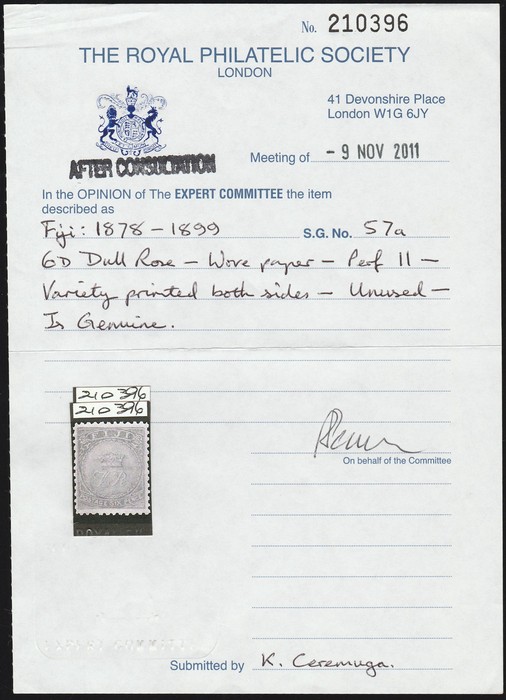 No. 210396
THE ROYAL PHILATELIC SOCIETY
LONDON
41 Devonshire Place
London W1G 6JY
AFTER CONSULTATION
Meeting of - 9 NOV 2011
In the OPINION of The EXPERT COMMITTEE the item
described as
Fiji: 1878-1899 S.G. No. 57a
6D Dull Rose - Wove paper - Perf 11 -
Variety printed both sides - Unused -
Is Genuine.
210396
210396
FIJI
On behalf of the Committee
Submitted by K. Ceremuga.